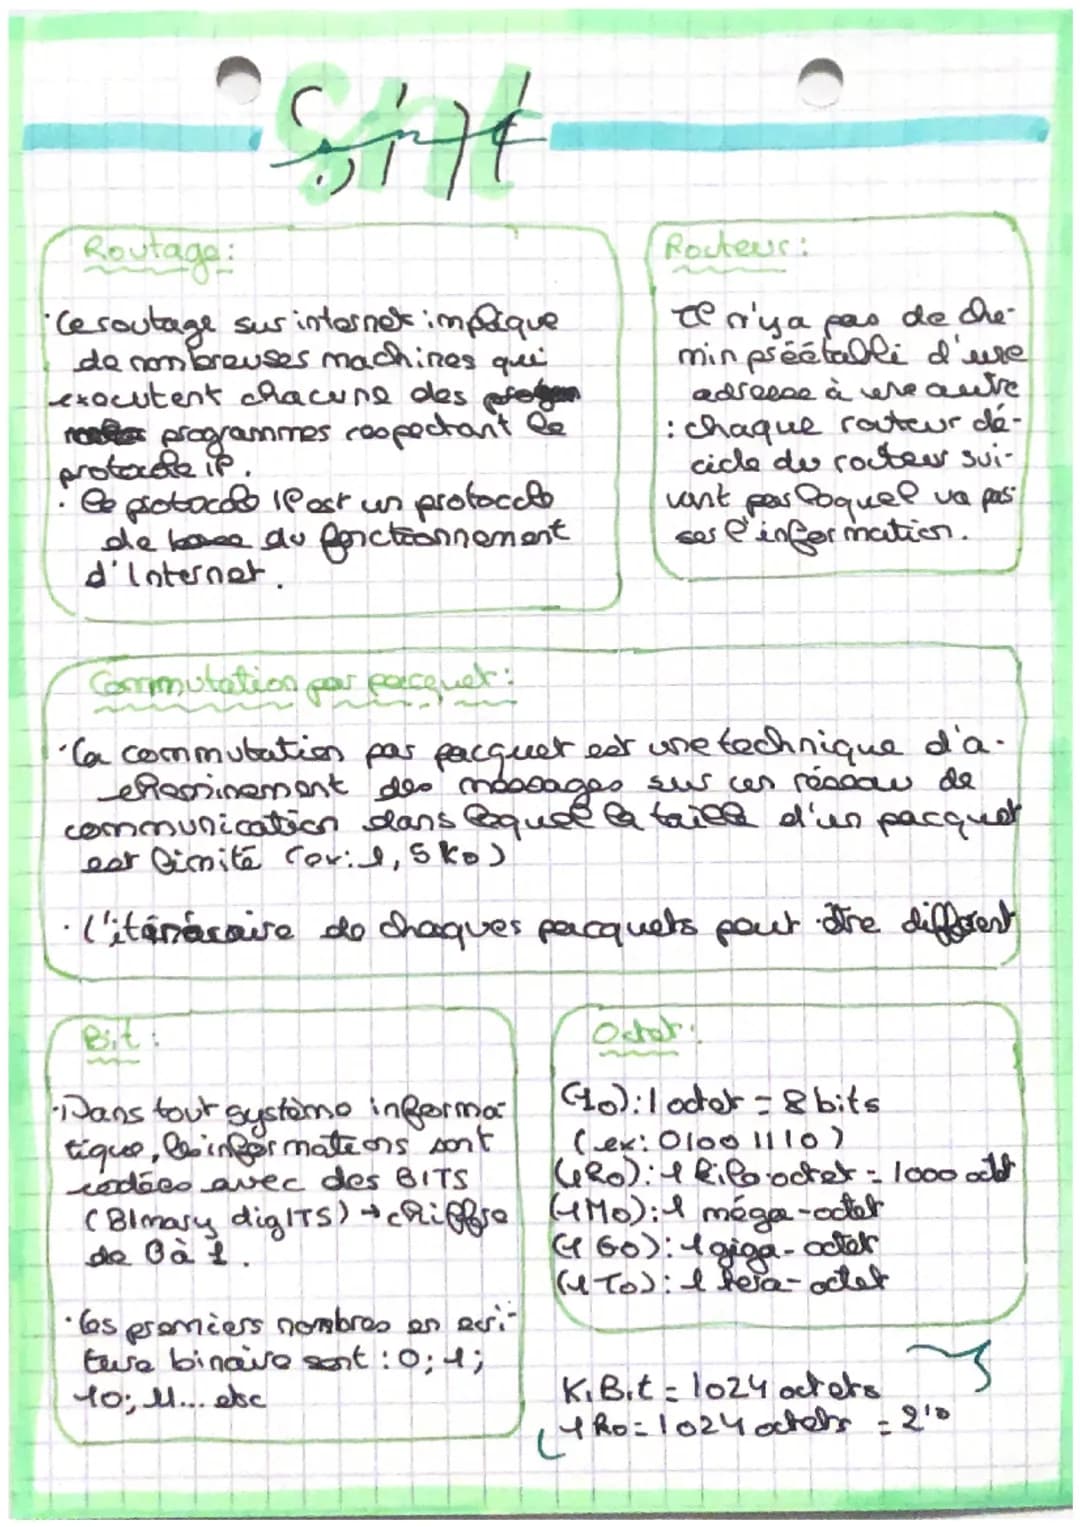 Snt
Routage:
· Le routage sur internet implique
de nombreuses machines qui
executent chacune des
programmes respectant le
protocole IP.
· le protocole IP est un protocole
de base du fonctionnement
d'Internet.
Routeur:
Il n'y a pas de che-
min préétabli d'une
adresse à une autre
: chaque routeur dé-
cide du routeur sui-
vant par loquel va pas-
ser l'information.
Commutation par pacquet:
· La commutation par pacquet est une technique d'a-
cheminement des messages sur un réseau de
communication dans lequel la taille d'un pacquet
est limité (ex: 1,5 Ko)
· L'itinéraire de chaques pacquets peut être différent
Bit:
· Dans tout système informa-
tique, les informations sont
codées avec des BITS
(BInary digITS) → chiffre
de 0 à 1.
· Les premiers nombres en écri-
ture binaire sont : 0; 1;
10; 11... etc
Octet:
(1o): 1 octet = 8 bits
(ex: 01001110)
(1Ko): 1 kilo-octet = 1000 octet
(1Mo): 1 méga-octet
(1 Go): 1 giga-octet
(1 To): 1 tera-octet
KiBit = 1024 octets
1 Ko = 1024 octets = 2¹⁰